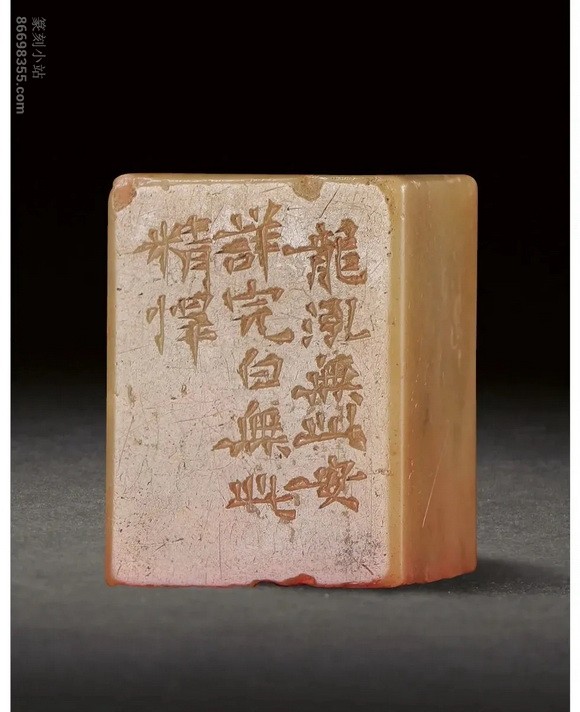 龍泓無此安
詳完白無此
精悍
篆刻小站
86698355.com